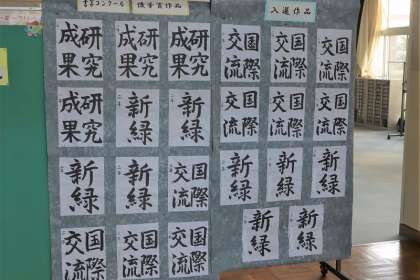 コンクール
優秀賞作品
研究
成果
研究
成果
研究
成果
研究
成果
新緑
新緑
新緑
新緑
国際
交流
国際
交流
新緑
国際
交流
入選作品
国際
交流
国際
交流
国際
交流
国際
交流
国際
交流
国際
交流
新緑
新緑
新緑
新緑
新緑